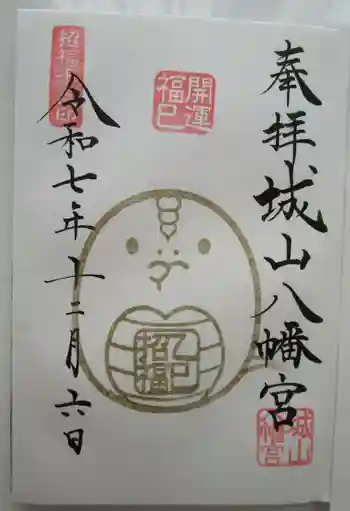 奉拝
城山八幡宮
開運
福巳
乙巳
招福
令和七年十二月六日
城山